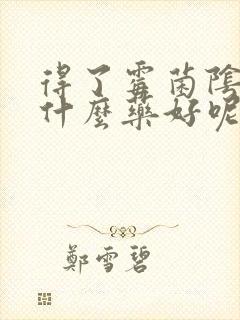 得了霉菌陰
什麼藥好呢
鄭雪碧